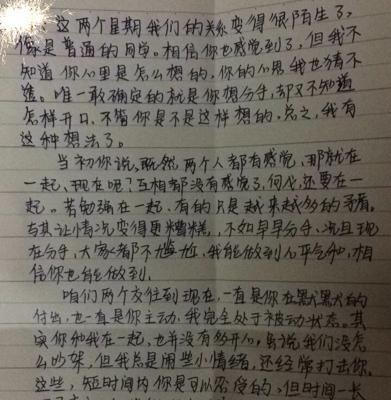 、这两个星期我们的关系变得很陌生了,
像是普通的同学。相信你也感觉到了,但我不
知道你心里是怎么想的,你的心思我也猜不
透。唯一敢确定的就是你想分手,却又不知道
怎样开口,不管你是不是这样想的,总之,我有
这种想法了。
当初你说,既然两个人都有感觉,那就在
一起,现在呢?互相都没有感觉了,何必还要在
一起。若勉强在一起,有的只是越来越多的矛盾。
与其让情况变得更糟糕,不如早早分手,况且现
在分手,大家都不尴尬,我能做到心平气和,相
信你也能做到。
咱们两个交往到现在,一直是你在默默的
付出,也一直是你主动,我完全处于被动状态。其
实你和我在一起,也并没有多开心,虽说我们没怎
么吵架,但我总是闹些小情绪,还经常打击你。
这些,短时间内你是可以忍受的,但时间一长